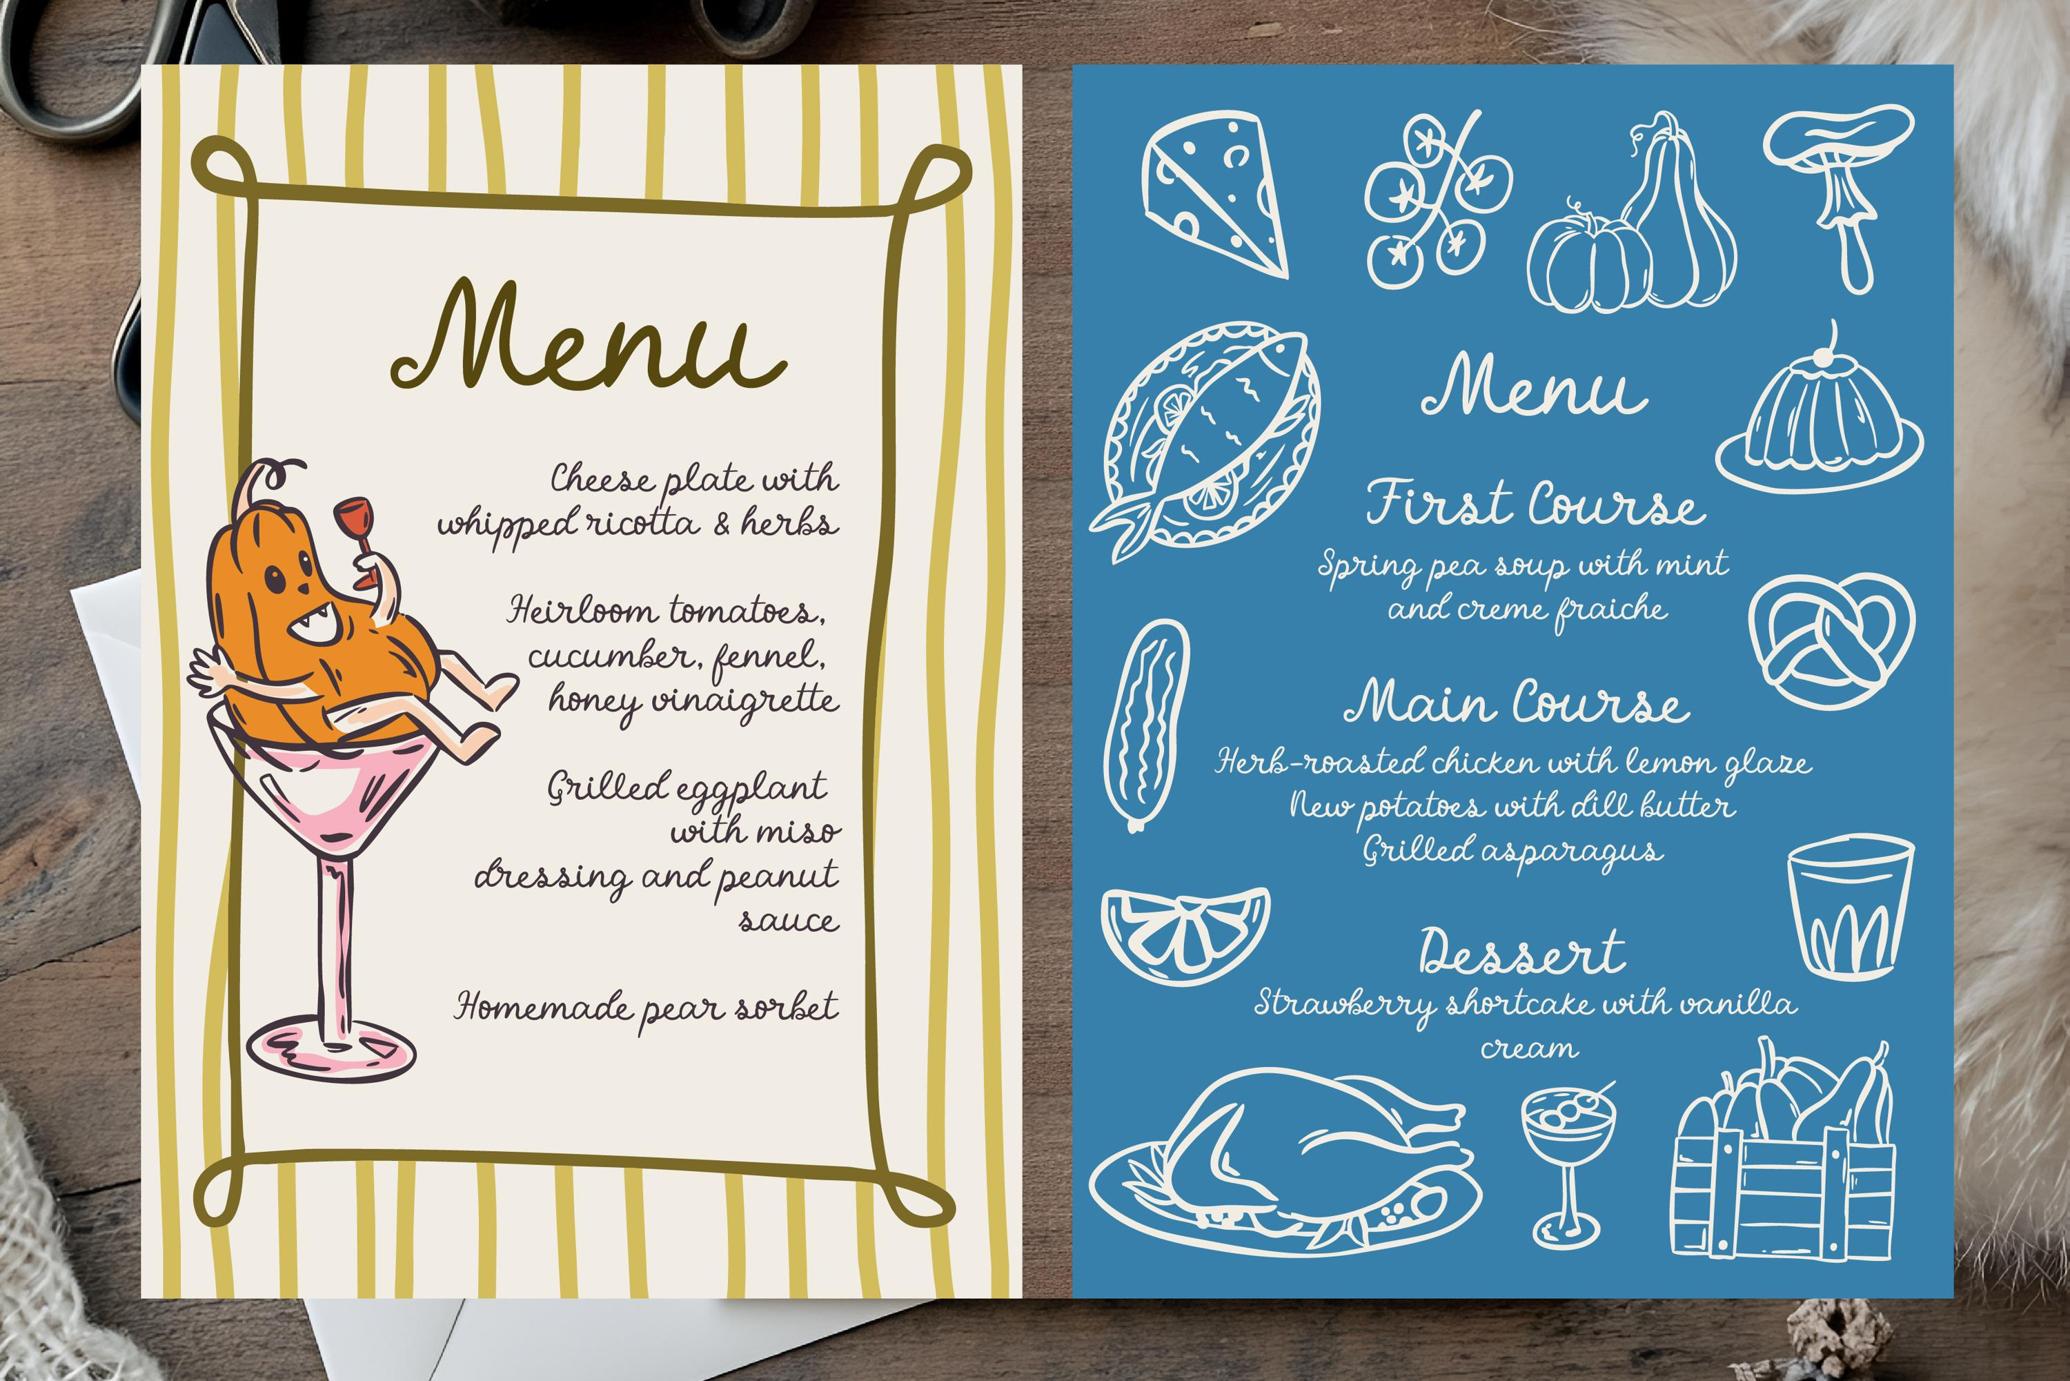 Menu
Cheese plate with
whipped ricotta & herbs
Heirloom tomatoes,
cucumber, fennel,
honey vinaigrette
Grilled eggplant
with miso
dressing and peanut
sauce
Homemade pear sorbet
Menu
First Course
Spring pea soup with mint
and creme fraiche
Main Course
Herb-roasted chicken with lemon glaze
New potatoes with dill butter
Grilled asparagus
Dessert
Strawberry shortcake with vanilla
cream